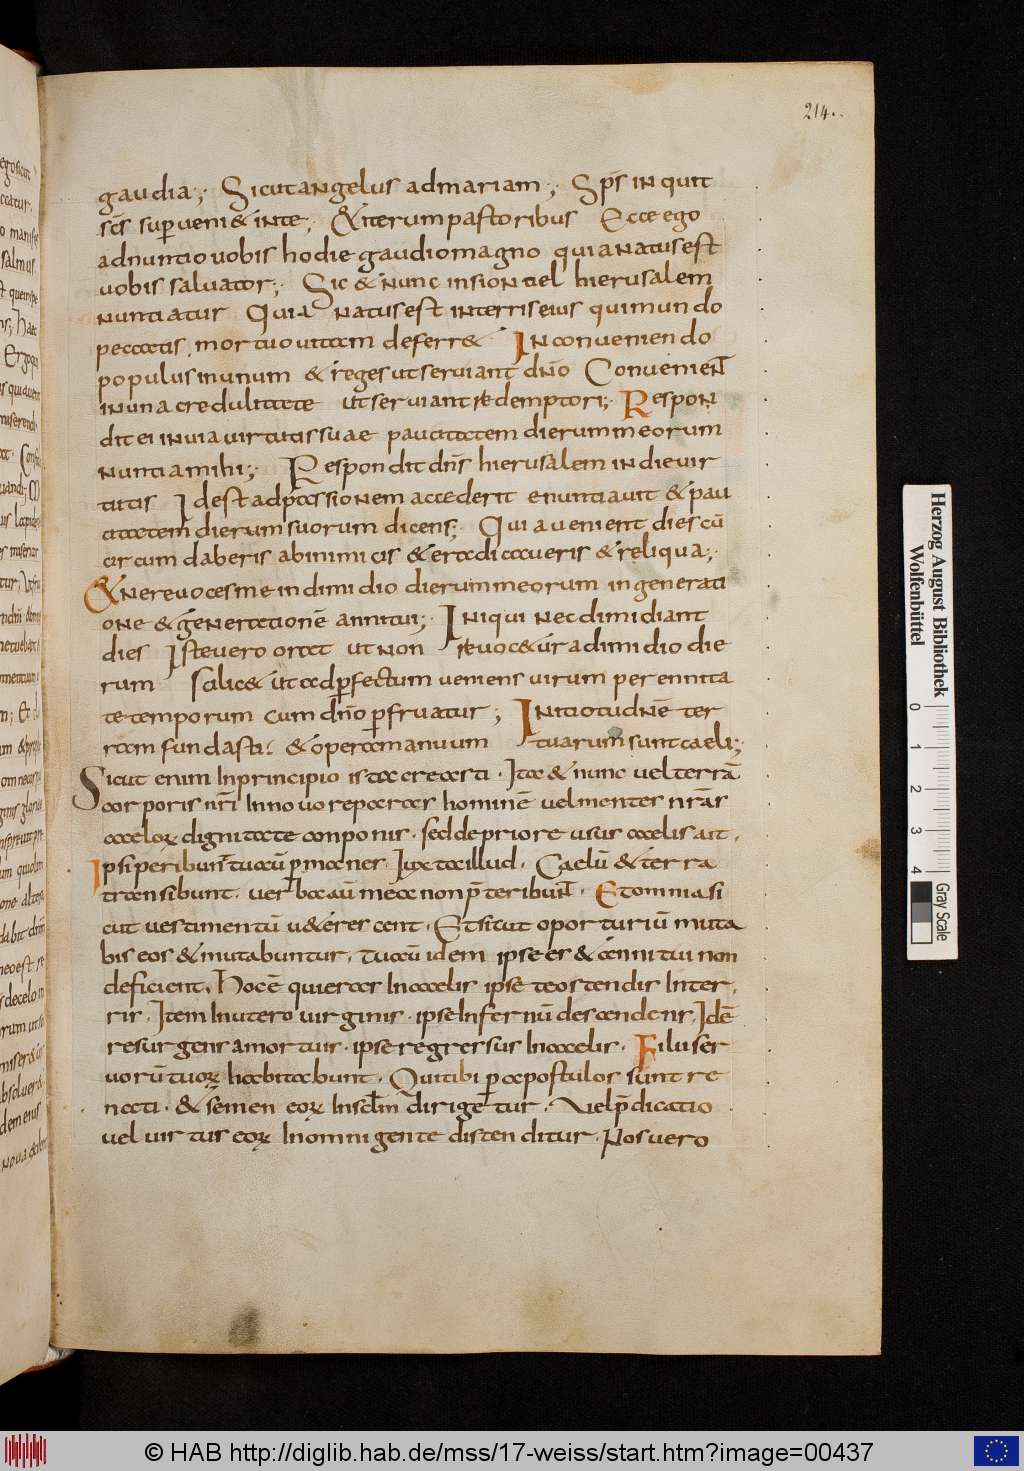 214.
gaudia; Sicut angelus ad mariam; Sp̄s inquit
sc̄s sup̄ueni& inte; &iterum pastoribus Ecce ego
adnuntio uobis hodie gaudio magno quia natus est
uobis saluator; Sic & nunc in sion uel hierusalem
nuntiatur Quia natus est interris eius qui mundo
peccatis mortuo uitam deferr& In conueniendo
populus inunum & reges ut seruiant dn̄o Conuenient
inuna credulitate ut seruiant redemptori; Respon
dit ei inuia uirtutis suae paucitatem dierum meorum
nuntia mihi; Respondit dn̄s hierusalem indie uir
tutis Idest ad passionem accederit enuntiauit & pau
citatem dierum suorum dicens; Quia uenient dies cū
circumdaberis abinimicis & ertadicaueris & reliqua;
&Ne reuoces me indimidio dierum meorum in generati
one & generationē anni tui; Iniqui nec dimidiant
dies Iste uero orat ut non reuoc&ur a dimidio die
rum Scilic& ut ad p̄fectum ueniens uirum perennita
te temporum cum dn̄o p̄fruatur; Initio tu dn̄e ter
ram fundasti: & opera manuum tuarum sunt caeli;
Sicut enim Inprincipio ista creasti. Ita & nunc uel terrā
corporis nr̄i Innouo reparas hominē uel mentes nr̄as
caelorꝝ dignitate conponis. sed depriore usus caelis ait.
Ipsi peribunt tu aū p̄manes. Iuxta illud. Caelū & terra
transibunt. uerba aū mea non p̄teribunt. Et omnia si
cut uestimentū u&erescent. Et sicut oporturiū muta
bis eos & mutabuntur. Tu aū idem ipse es & anni tui non
deficient. Hoc ē quieras Incaelis ipse te ostendis Inter,
ris. Item Inutero uirginis. ipse Infernū descendens. Idē
resurgens amortuis. ipse regressus Incaelis. Filii ser
uorū tuorꝝ habitabunt. Qui tibi p̄ apostulos sunt re
nati. & semen eorꝝ Insc̄lm dirigetur. Uel p̄dicatio
uel uirtus eorꝝ Inomni gente distenditur. Nos uero
Herzog August Bibliothek
Wolfenbüttel
0 1 2 3 4
Gray Scale
© HAB http://diglib.hab.de/mss/17-weiss/start.htm?image=00437